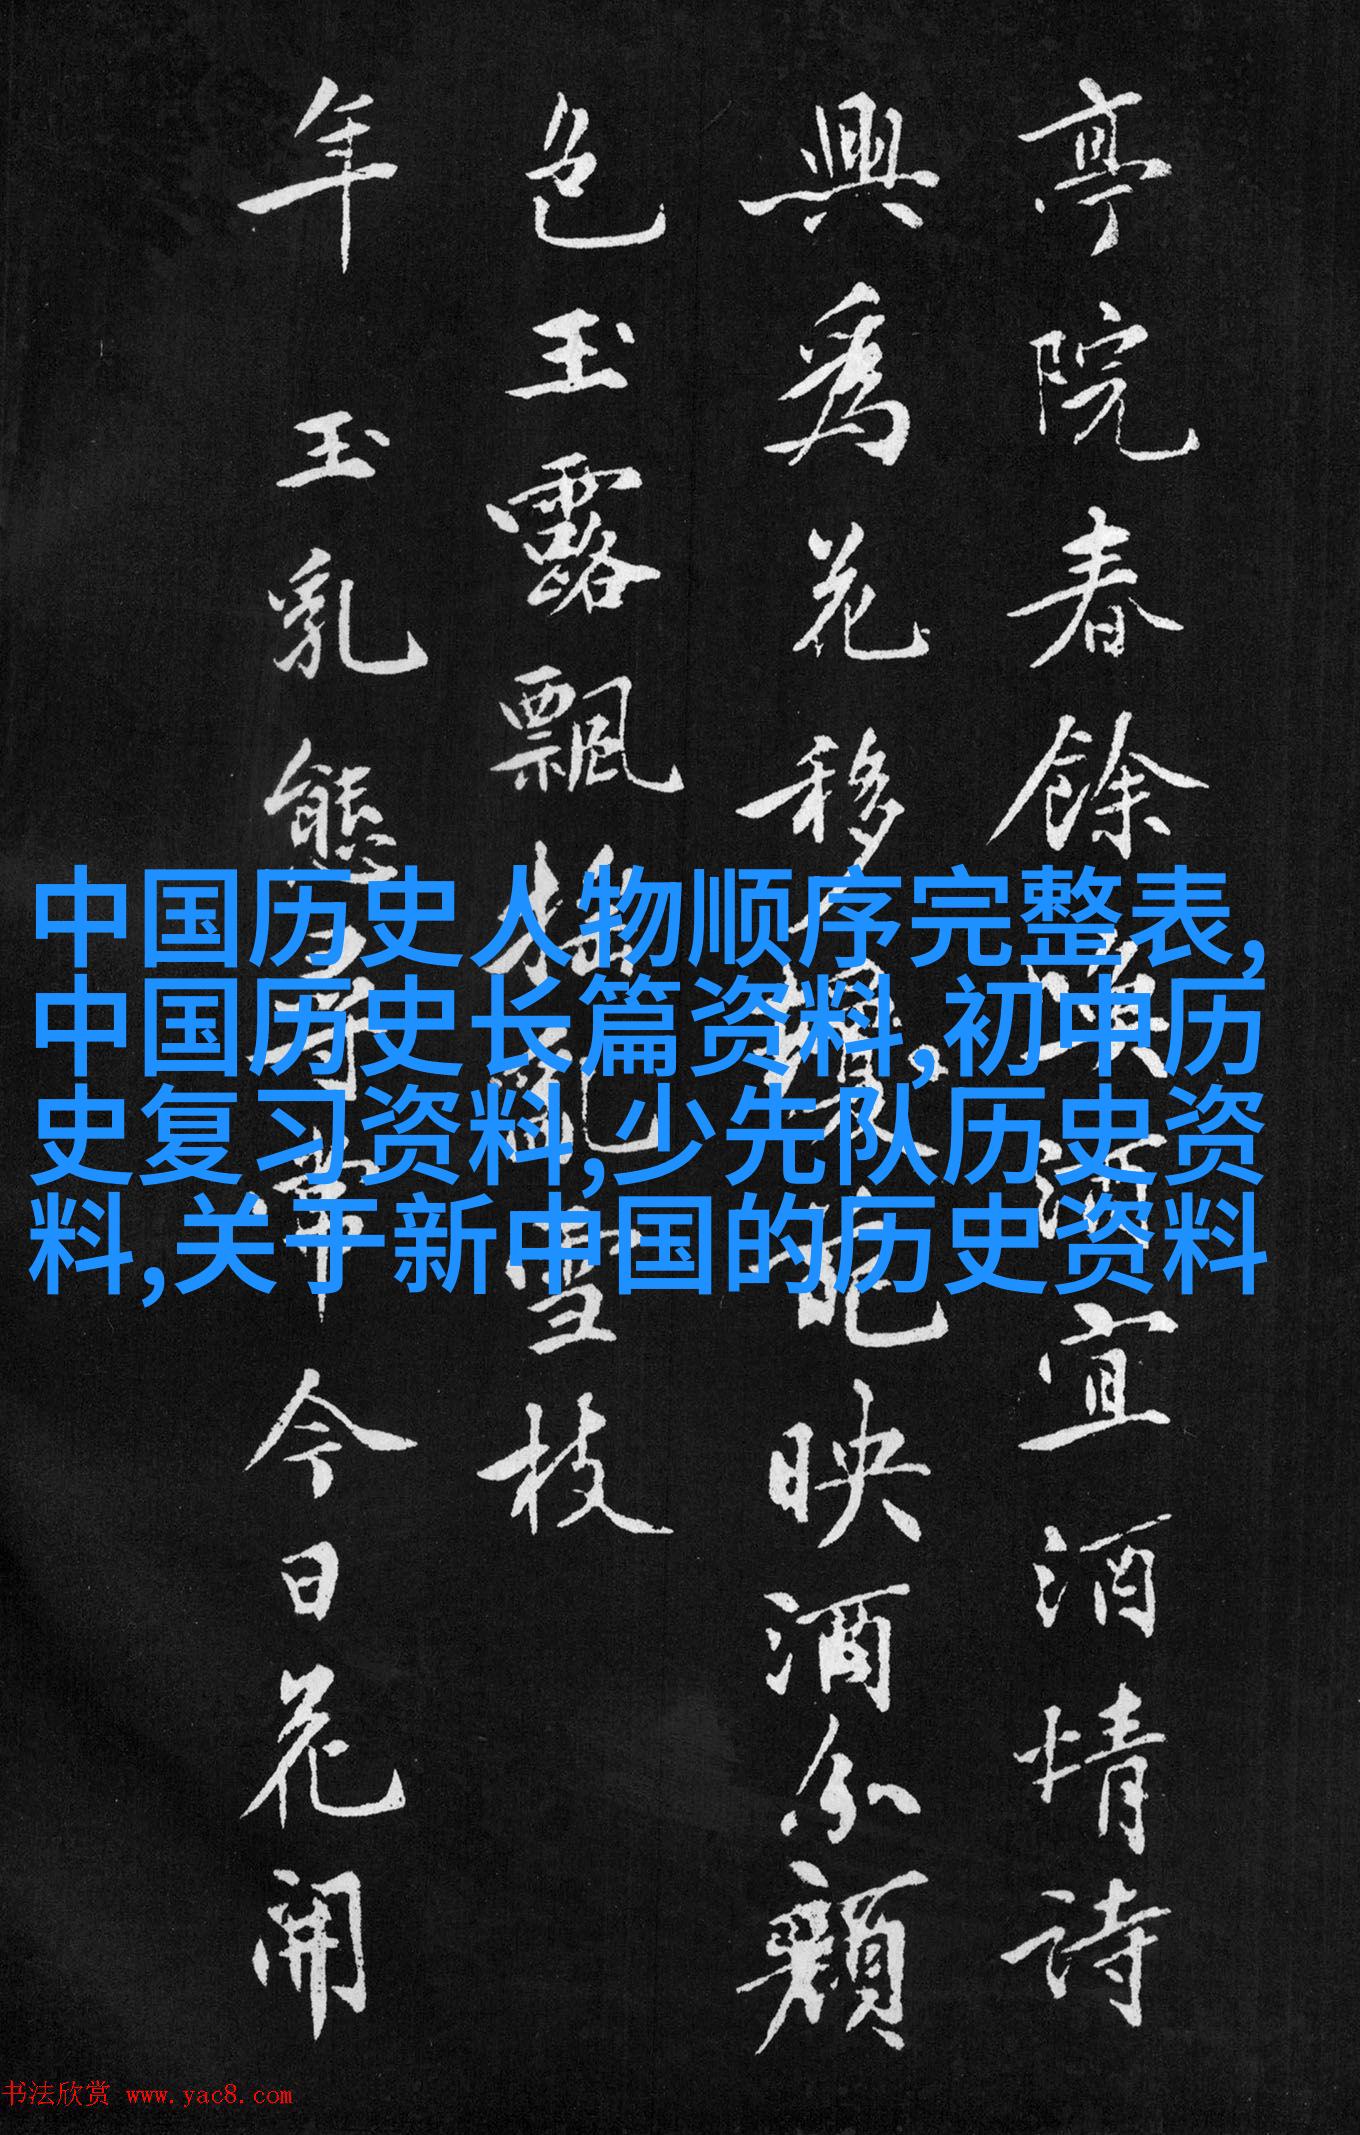 亭院春餘宜酒情詩
興爲花移映酒分顏
色玉露飄枝
年玉乳態今日花開
中国历史人物顺序完整表,
中国历史长篇资料,初中历
史复习资料,少先队历史资
料,关于新中国的历史资料
书法欣赏 www.yac8.com